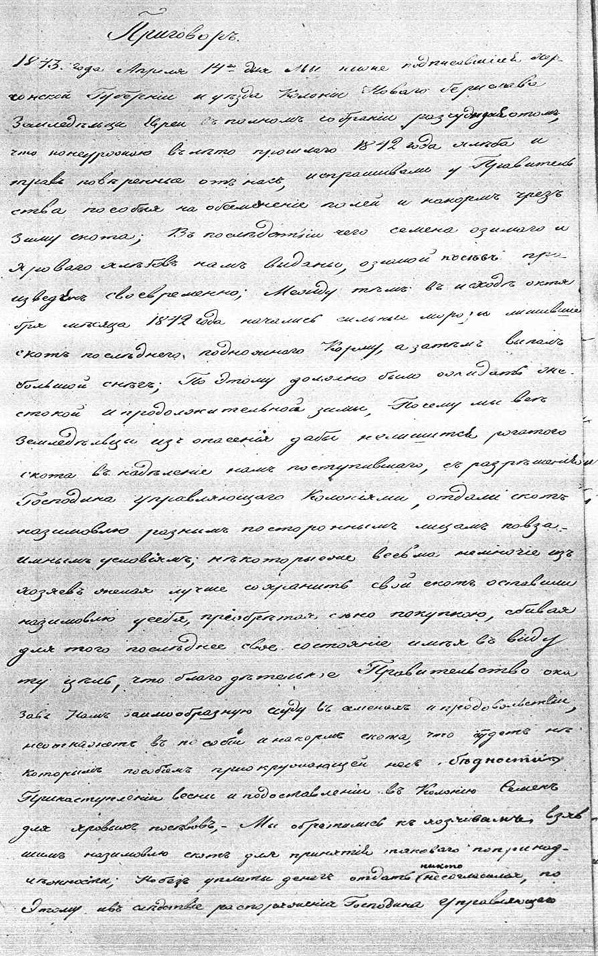 Приговоръ.
1843. года Апреля 14го дня Мы ниже подписавшіеся Хер-
сонской Губерніи и уезда Колоніи Новаго Берислава
Земледѣльцы Евреи въ полномъ собраніи разсуждая отомъ,
что понеурожаю влѣто прошлаго 1842 года хлѣба и
травъ повѣренные отъ насъ, испрашивали у Правитель
ства пособія на обсемененіе полей и накормъ чрезъ
Зиму скота; Въ послѣдствіи чего семена озимаго и
яроваго хлѣбовъ намъ виданы, озимой посѣвъ про
изведенъ своевременно; Между тѣмъ въ исходѣ октя
бря мѣсяца 1842 года начались сильные морозы лишившіе
скотъ послѣдняго подножнаго Корму, а затемъ випалъ
большой снѣгъ; По Этому должно было ожидать жес-
стокой и продолжительной зимы, Посему мы всѣ
Земледѣльцы изъ опасенія дабы нелишится рогатого
скота въ надѣленіе намъ поступившаго, съ разрѣшенія
Господина управляющаго Колоніями, отдали скотъ
назимовлю разнымъ постороннымъ лицамъ повза-
имнымъ условіямъ; нѣкоторые же весьма немногіе изъ
хозяевъ желая лучше сохранить свой скотъ оставили
назимовлю усебя, пріобрѣтая сѣно покупкою, сбивая
для того послѣднее свое состояніе имѣя въ виду
ту цѣль, что благодѣтельное Правительство ока
завъ Намъ заимообразную ссуду въ семенахъ и продовольствіи,
неоткажетъ въ пособіи и накормъ скота, что будетъ нѣ
которымъ пособіемъ приокружающей насъ бѣдности
Принаступленіи весни и подоставленіи въ Колонію Семенъ
для яровыхъ посѣвовъ,- Мы обратились къ хозяевамъ взяв
шимъ назимовлю скотъ для принятія таковаго попринад-
лежности; Нобезъ уплаты денегъ отдать никто несогласился, по
Этому въ слѣдствіе распоряженія Господина Управляющаго